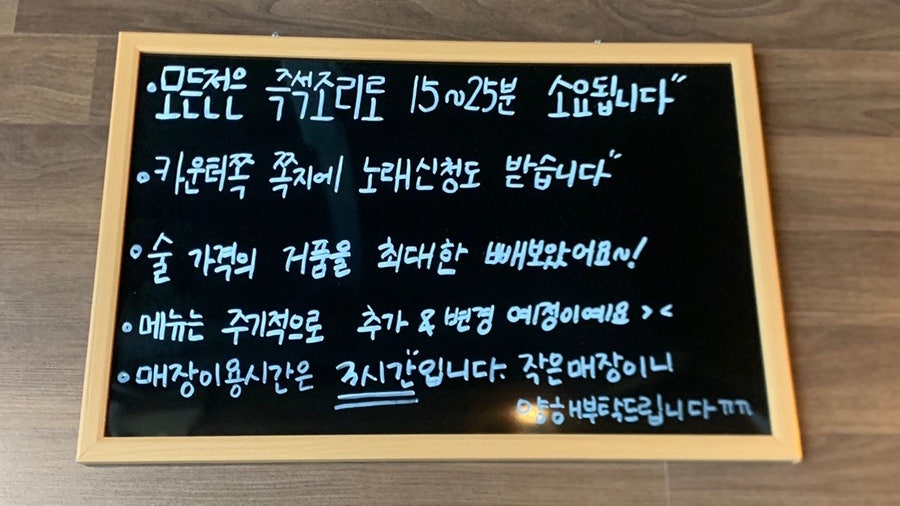 • 모든전은 즉석조리로 15~25분 소요됩니다"
• 카운터쪽 쪽지에 노래신청도 받습니다"
• 술 가격의 거품을 최대한 빼보았어요~!
• 메뉴는 주기적으로 추가 & 변경 예정이예요 > <
• 매장이용시간은 "3시간"입니다. 작은매장이니
양해부탁드립니다ㅠㅠ